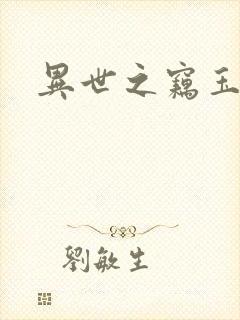 異世之竊玉
劉敏生